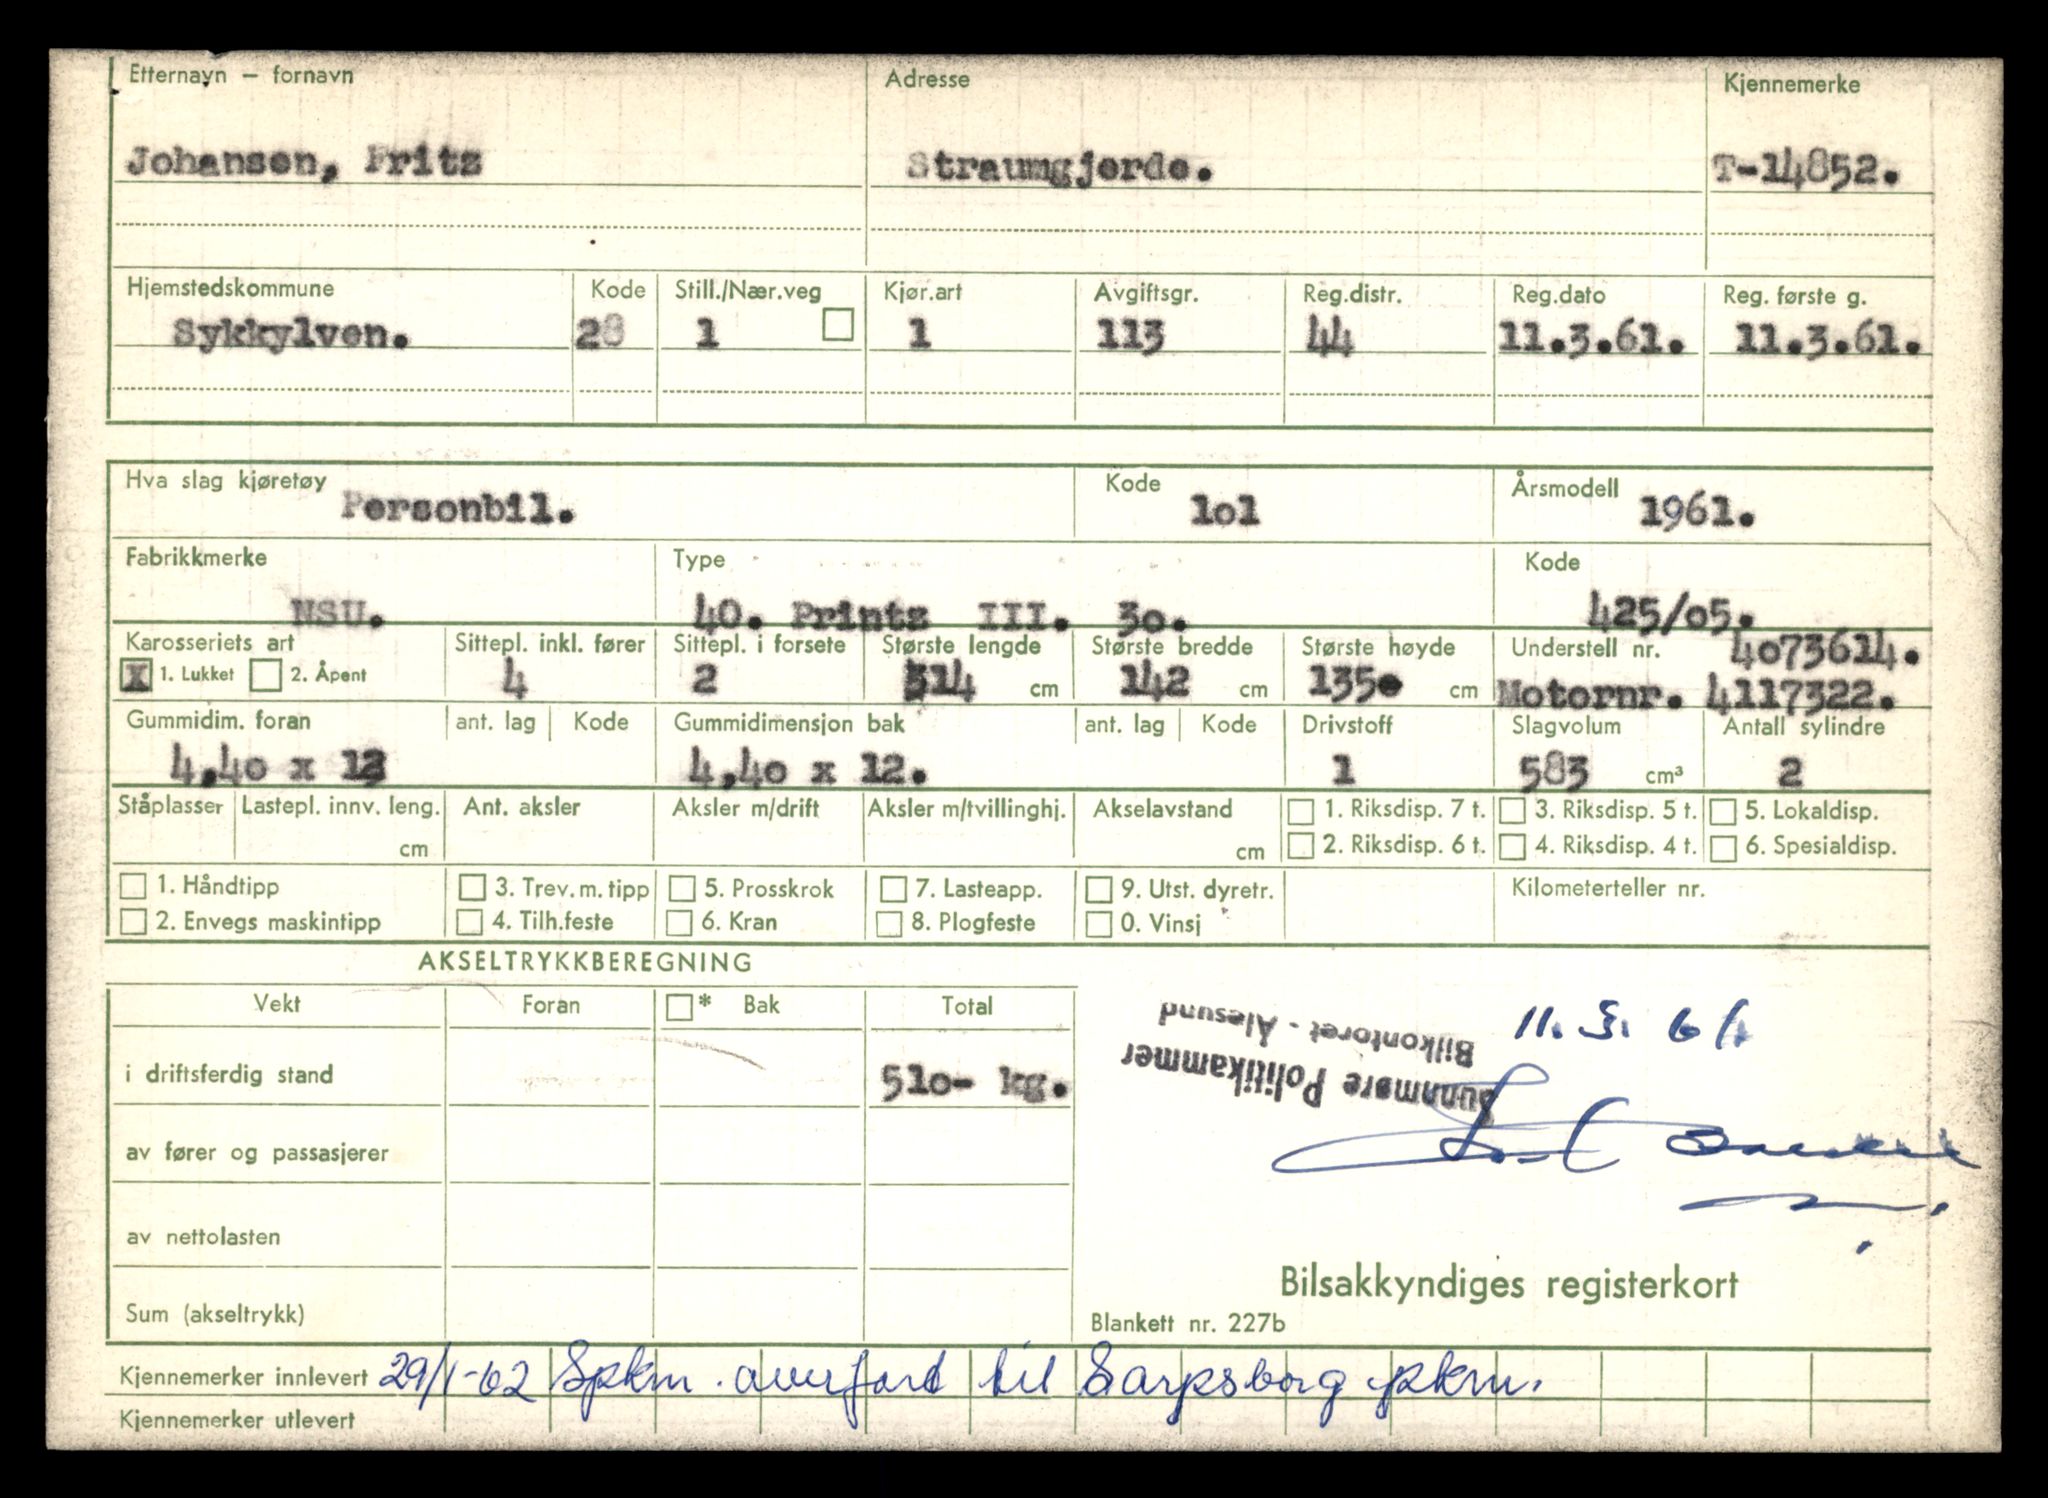 Etternavn — fornavn Adresse Kjennemerke
Johansen, Fritz Straumgjerde. T-14852.
Hjemstedskommune Kode Still./Nær.veg Kjør.art Avgiftsgr. Reg.distr. Reg.dato Reg. første g.
Sykkylven. 28 1 1 113 44 11.3.61. 11.3.61.
Hva slag kjøretøy Kode Årsmodell
Personbil. 101 1961.
Fabrikkmerke Type Kode
NSU. 40. Printz III. 30. 425/05.
Karosseriets art Sittepl. inkl. fører Sittepl. i forsete Største lengde Største bredde Største høyde Understell nr. 4073614.
X 1. Lukket 2. Åpent 4 2 314 cm 142 cm 135 cm Motornr. 4117322.
Gummidim. foran ant. lag Kode Gummidimensjon bak ant. lag Kode Drivstoff Slagvolum Antall sylindre
4,40 x 12 4,40 x 12. 1 583 cm³ 2
Ståplasser Lastepl. innv. leng. Ant. aksler Aksler m/drift Aksler m/tvillinghj. Akselavstand 1. Riksdisp. 7 t. 3. Riksdisp. 5 t. 5. Lokaldisp.
cm cm 2. Riksdisp. 6 t. 4. Riksdisp. 4 t. 6. Spesialdisp.
1. Håndtipp 3. Trev. m. tipp 5. Prosskrok 7. Lasteapp. 9. Utst. dyretr. Kilometerteller nr.
2. Envegs maskintipp 4. Tilh.feste 6. Kran 8. Plogfeste 0. Vinsj
AKSELTRYKKBEREGNING
Vekt Foran * Bak Total
i driftsferdig stand 510- kg.
av fører og passasjerer
av nettolasten
Sum (akseltrykk)
11. 3. 61
Sunnmøre Politikammer
Bilkontoret - Ålesund
Bilsakkyndiges registerkort
Blankett nr. 227b
Kjennemerker innlevert 29/1-62 Spkm. overført til Sarpsborg pkm.
Kjennemerker utlevert